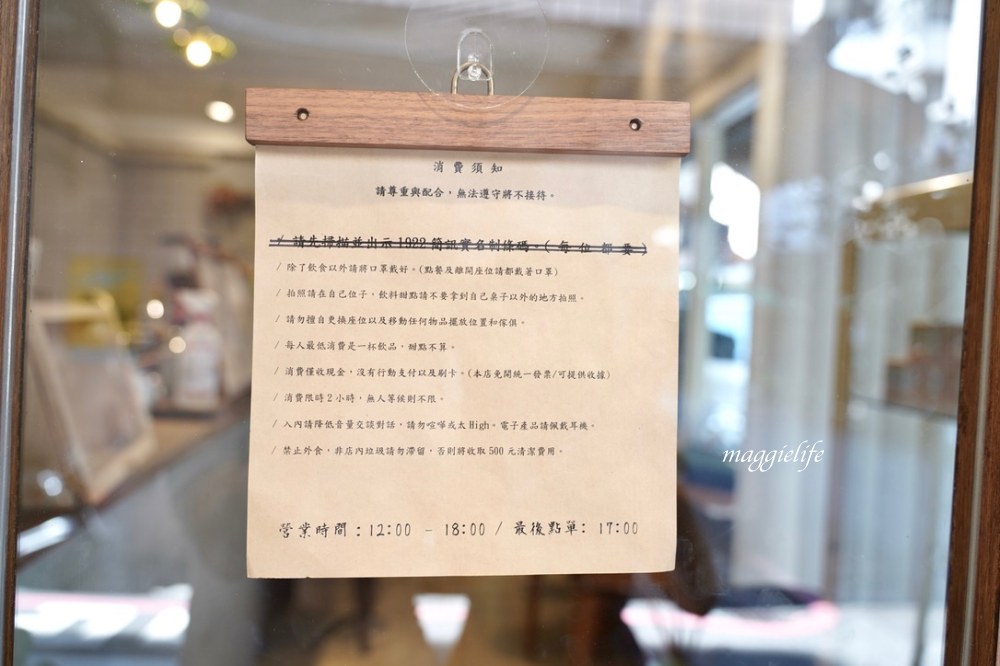 消費須知
請尊重與配合，無法遵守將不接待。
/ 請先掃描並出示1922簡訊實名制條碼。(每位都要)
/ 除了飲食以外請將口罩戴好。(點餐及離開座位請都戴著口罩)
/ 拍照請在自己位子，飲料甜點請不要拿到自己桌子以外的地方拍照。
/ 請勿擅自更換座位以及移動任何物品擺放位置和傢俱。
/ 每人最低消費是一杯飲品，甜點不算。
/ 消費僅收現金，沒有行動支付以及刷卡。(本店免開統一發票/可提供收據)
/ 消費限時2小時，無人等候則不限。
/ 入內請降低音量交談對話，請勿喧嘩或太High。電子產品請佩戴耳機。
/ 禁止外食，非店內垃圾請勿滯留，否則將收取500元清潔費用。
營業時間：12:00 – 18:00 / 最後點單：17:00
maggielife